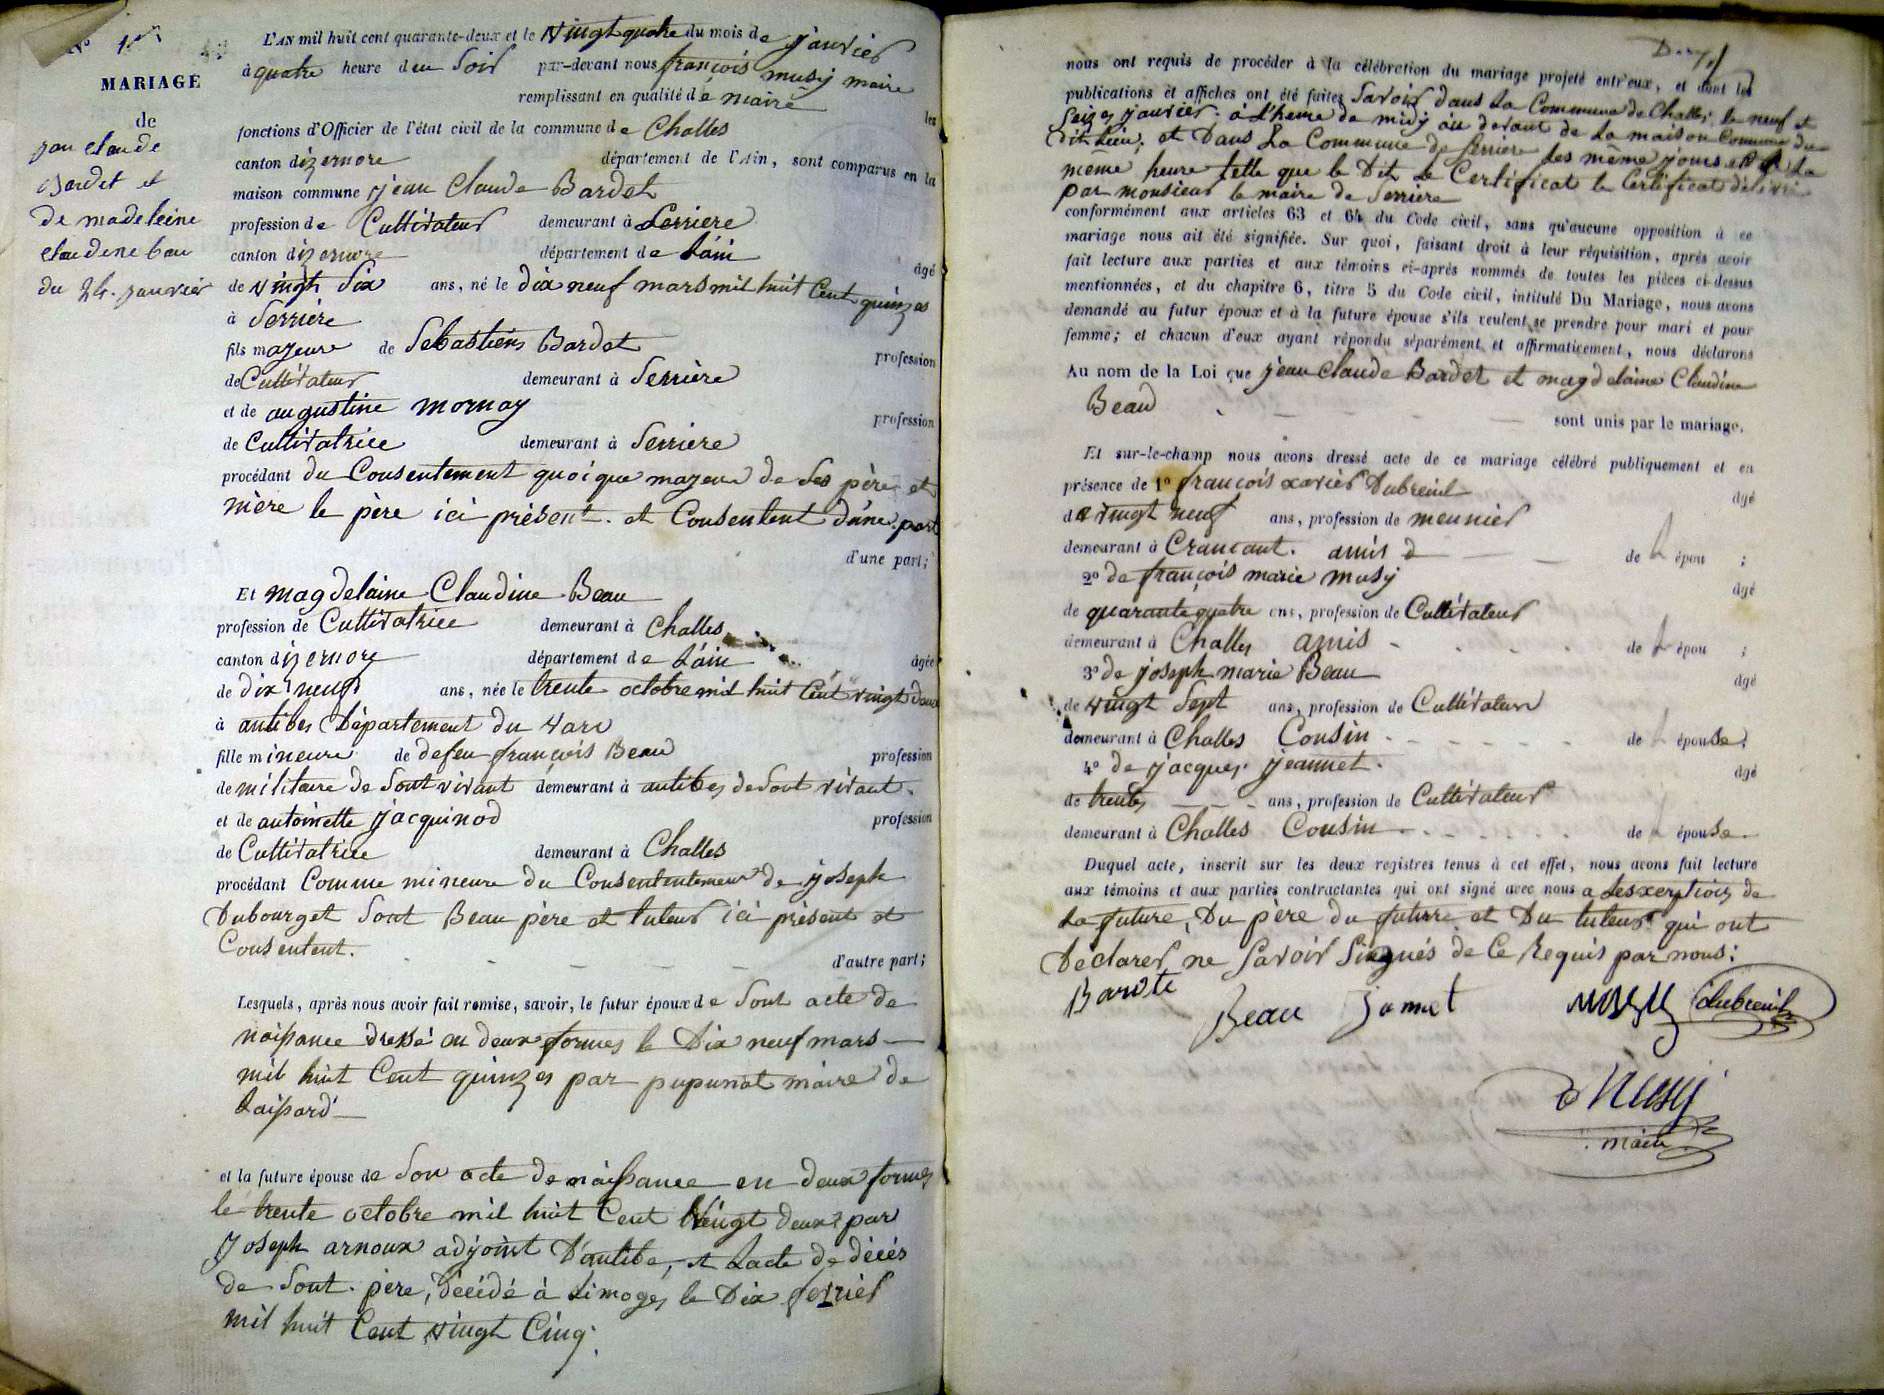 N° 1er
MARIAGE
de
jan claude
Bardet et
de madeleine
claudene bau
du 24. janvier
L'AN mil huit cent quarante-deux et le vingt quatre du mois de janvier
à quatre heure du Soir par-devant nous françois musy maire
remplissant en qualité de maire les
fonctions d'Officier de l'état civil de la commune de Challes
canton dizernore département de l'Ain, sont comparus en la
maison commune jean Claude Bardet
profession de Cultivateur demeurant à Serriere
canton dizernore département de Lain
âgé
de vingt Six ans, né le dix neuf mars mil huit Cent quinzes
à Serriere
fils majeure de Sebastiens Bardet
profession
de Cultivateur demeurant à Serrière
et de augustine mornay
profession
de Cultivatrice demeurant à Serriere
procédant du Consentement quoique majeur de Ses père et
mère le père ici présent. et Consentent d'une part
d'une part;
Et magdelaine Claudine Beau
profession de Cultivatrice demeurant à Challes
canton dizernore département de Lain âgée
de dix neuf ans, née le trente octobre mil huit Cent vingt deux
à antibes Département du Vard
fille mineure de defeu françois Beau profession
de militaire de Sont vivant demeurant à antibes de Sont vivant.
et de antoinette jacquinod profession
de Cultivatrice demeurant à Challes
procédant Comme mineure du Consententement de joseph
Dubourget Sont Beau père et tuteur ici présent et
Consentent.
d'autre part;
Lesquels, après nous avoir fait remise, savoir, le futur époux de Sont acte de
naissance dressé en deux formes le Dix neuf mars
mil huit Cent quinzes par pupunat maire de
Laissard
et la future épouse de Son acte de naissance en deux formes
le trente octobre mil huit Cent vingt deux par
Joseph arnoux adjoint D'antibe, et Lacte de décés
de Sont père, décédé à Limoges le Dix fevrier
mil huit Cent vingt Cinq.
nous ont requis de procéder à la célébration du mariage projeté entr'eux, et dont les
publications et affiches ont été faites Savoir dans La Commune de Challes le neuf et
Seizes janvier. à L'heure de midy au devant de La maison Commune du
Dit Lieu, et Dans La Commune de Serriere les même jours et à La
meme heure telle que le Dit Le Certificat le Certificat délivré
par monsieur le maire de Serriere
conformément aux articles 63 et 64 du Code civil, sans qu'aucune opposition à ce
mariage nous ait été signifiée. Sur quoi, faisant droit à leur réquisition, après avoir
fait lecture aux parties et aux témoins ci-après nommés de toutes les pièces ci-dessus
mentionnées, et du chapitre 6, titre 5 du Code civil, intitulé Du Mariage, nous avons
demandé au futur époux et à la future épouse s'ils veulent se prendre pour mari et pour
femme; et chacun d'eux ayant répondu séparément et affirmativement, nous déclarons
Au nom de la Loi que jean Claude Bardet et magdelaine Claudine
Beau
sont unis par le mariage.
Et sur-le-champ nous avons dressé acte de ce mariage célébré publiquement et en
présence de 1° françois xavier Dubreuil
âgé
de vingt neuf ans, profession de meunier
demeurant à Crancant. amis de l épou ;
2° de françois marie musy
âgé
de quarante quatre ans, profession de Cultivateur
demeurant à Challes amis de l épou ;
3° de joseph marie Beau
âgé
de vingt Sept ans, profession de Cultivateur
demeurant à Challes Cousin de l épouse;
4° de jacques jeannet.
âgé
de trentes ans, profession de Cultivateur
demeurant à Challes Cousin de l épouse
Duquel acte, inscrit sur les deux registres tenus à cet effet, nous avons fait lecture
aux témoins et aux parties contractantes qui ont signé avec nous a Lesxerption de
La future, Du père du future et Du tuteur qui ont
Déclarer ne Savoir Singués de Ce Requis par nous:
Beau Musy Dubreuil
Musy
maire